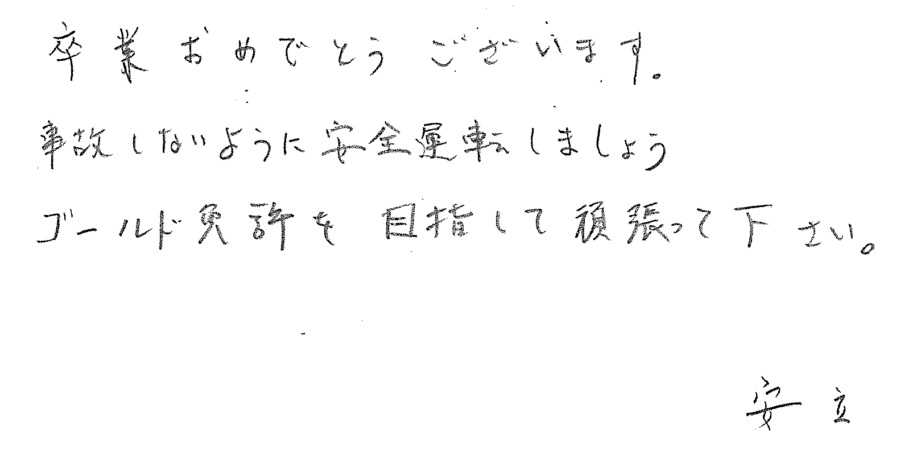 卒業おめでとうございます。
事故しないように安全運転しましょう
ゴールド免許を目指して頑張って下さい。
安立